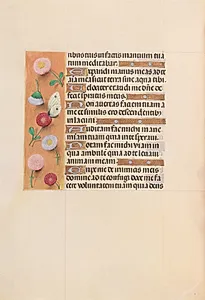 ribus tuis in factis manuum tua
rum meditabar.
Expandi manus meas ad te
Velociter exaudi me domine de
fecit spiritus meus.
Non avertas faciem tuam a
me et similis ero descendentibus
in lacum
Auditam fac michi mane
am tuam quia in te speravi.
Notam fac michi viam in
qua ambulem quia ad te levavi
animam meam.
Eripe me de inimicis meis
domine ad te confugi doce me fa
cere voluntatem tuam quia deus